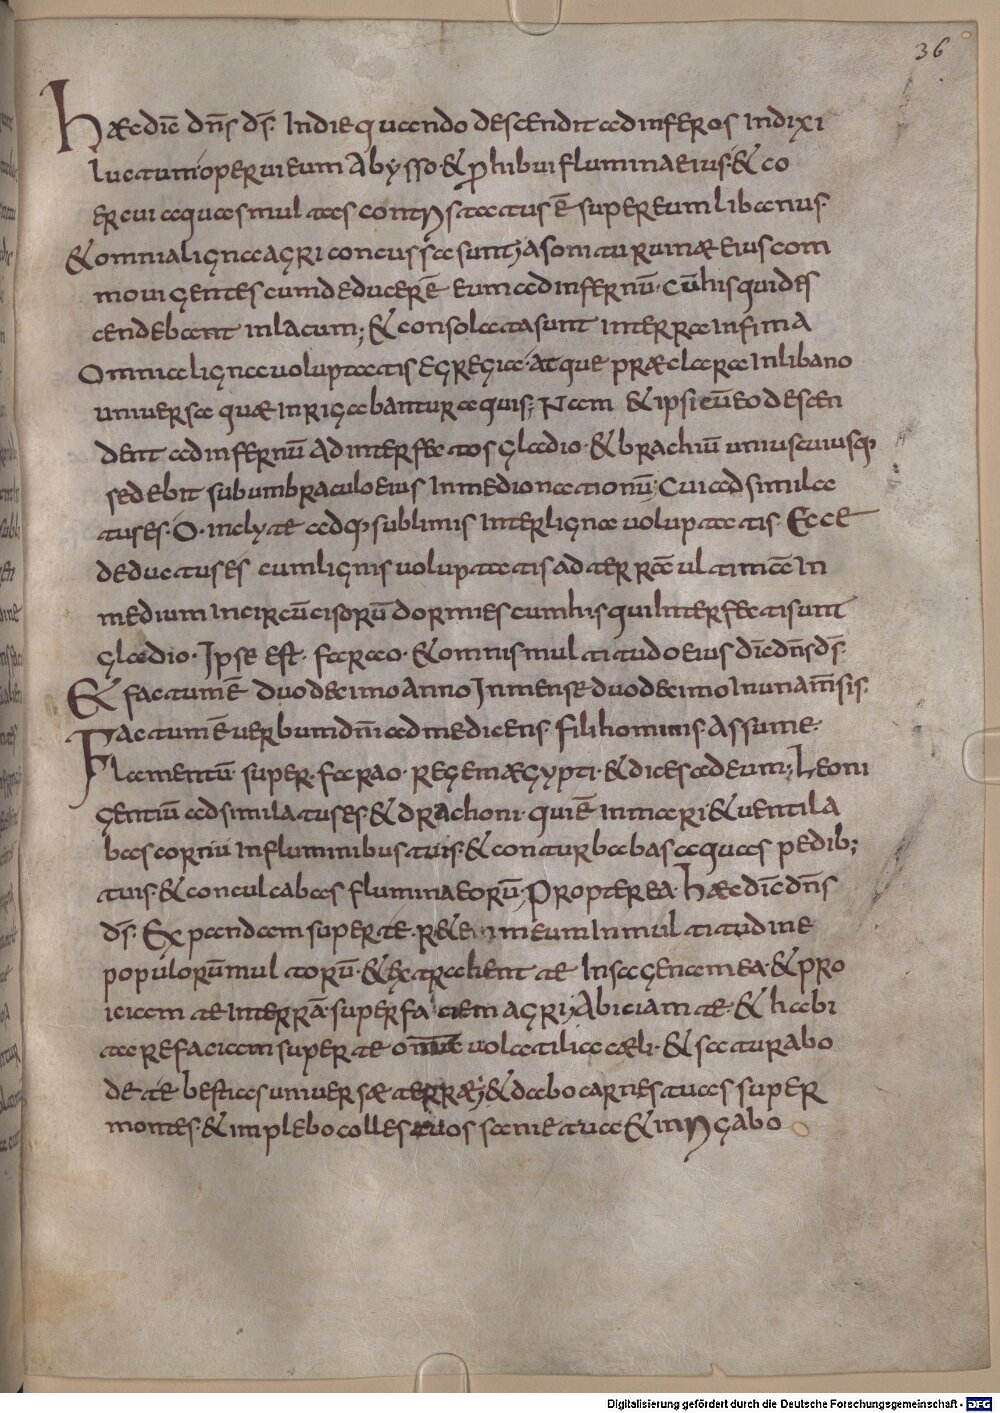 36
Hæc dic̄ dn̄s ds̄. In die quando descendit ad inferos indixi
luctum. operui eum abysso. & ꝓhibui flumina eius. & co
ercui aquas multas contristatus ē super eum libanus.
& omnia ligna agri concussa sunt; a sonitu ruinæ eius com
moui gentes cum deducerē eum ad infernū. cū his qui des
cendebant in lacum; & consolata sunt in terra infima
Omnia ligna uoluptatis egregia. atque præclara in libano
uniuersa quæ inrigabantur aquis; Nam & ipsi cū eo descen
dent ad infernū ad interfectos gladio. & brachiū uniuscuiusq;
sedebit sub umbraculo eius in medio nationū; Cui adsimila
tus es. O. inclyte adq; sublimis inter ligna uoluptatis. Ecce
deductus es cum lignis uoluptatis ad terrā ultimā in
medium incircūcisorū dormies cum his qui interfecti sunt
gladio. Ipse est. farao. & omnis multitudo eius dic̄ dn̄s ds̄.
Et factum ē duodecimo anno in mense duodecimo in una m̄sis.
Factum ē uerbum dn̄i ad me dicens. fili hominis. assume.
lamentū super. farao. regem ægypti. & dices ad eum; Leoni
gentiū adsimilatus es. & drachoni. qui ē in mari. & uentila
bas cornu in fluminibus tuis. & conturbabas aquas pedib;
tuis. & conculcabas flumina eorū. Propterea. hæc dic̄ dn̄s
ds̄. Expandam super te. r&e meum in multitudine
populorū multorū. & extrahent te in sagena mea. & pro
iciam te in terrā. super faciem agri; Abiciam te. & habi
tare faciam super te omne uolatilia cæli. & saturabo
de te bestias uniuersæ terræ; & dabo carnes tuas super
montes. & implebo colles tuos sanie tua & inrigabo
Digitalisierung gefördert durch die Deutsche Forschungsgemeinschaft - DFG